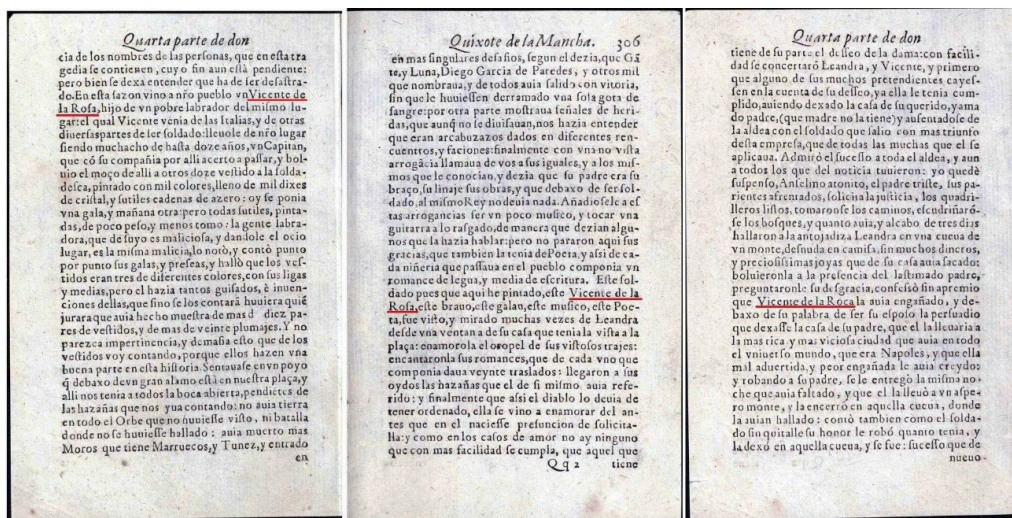 Quarta parte de don
cia de los nombres de las personas, que en esta tra
gedia se contienen, cuyo fin aun está pendiente:
pero bien se dexa entender que ha de ser desastra-
do. En esta sazon vino a nr̃o pueblo vn Vicente de
la Rosa, hijo de vn pobre labrador del mismo lu-
gar: el qual Vicente venia de las Italias, y de otras
diuersas partes de ser soldado: lleuole de nr̃o lugar
siendo muchacho de hasta doze años, vn Capitan,
que cõ su compañia por alli acerto a passar, y bol-
uio el moço de alli a otros doze vestido a la solda-
desca, pintado con mil colores, lleno de mil dixes
de cristal, y sutiles cadenas de azero: oy se ponia
vna gala, y mañana otra: pero todas sutiles, pinta-
das, de poco peso, y menos tomo: la gente labra-
dora, que de suyo es maliciosa, y dandole el ocio
lugar, es la misma malicia, lo notò, y contò punto
por punto sus galas, y preseas, y hallò que los ves-
tidos eran tres de diferentes colores, con sus ligas
y medias, pero el hazia tantos guisados, è inuen-
ciones dellas, que sino se los contará huuiera quié
jurara que auia hecho muestra de mas d diez pa-
res de vestidos, y de mas de veinte plumajes. Y no
parezca impertinencia, y demasia esto que de los
vestidos voy contando, porque ellos hazen vna
buena parte en esta historia. Sentauase en vn poyo
q̃ debaxo de vn gran alamo está en nuestra plaça, y
alli nos tenia a todos la boca abierta, pendiẽtes de
las hazañas que nos yua contando: no auia tierra
en todo el Orbe que no huuiesse visto, ni batalla
donde no se huuiesse hallado: auia muerto mas
Moros que tiene Marruecos, y Tunez, y entrado
en
Quixote de la Mancha. 306
en mas singulares desafios, segun el dezia, que Gã
te, y Luna, Diego Garcia de Paredes, y otros mil
que nombraua, y de todos auia salido con vitoria,
sin que le huuiessen derramado vna sola gota de
sangre: por otra parte mostraua señales de heri-
das, que aunq̃ no se diuisauan, nos hazia entender
que eran arcabuzazos dados en diferentes ren-
cuentros, y faciones: finalmente con vna no vista
arrogãcia llamaua de vos a sus iguales, y a los mis-
mos que le conocian, y dezia que su padre era su
braço, su linaje sus obras, y que debaxo de ser sol-
dado, al mismo Rey no deuia nada. Añadiosele a es
tas arrogancias ser vn poco musico, y tocar vna
guitarra a lo rasgado, de manera que dezian algu-
nos que la hazia hablar: pero no pararon aqui sus
gracias, que tambien la tenia de Poeta, y assi de ca-
da niñeria que passaua en el pueblo componia vn
romance de legua, y media de escritura. Este sol-
dado pues que aqui he pintado, este Vicente de la
Rosa, este brauo, este galan, este musico, este Poe-
ta, fue visto, y mirado muchas vezes de Leandra
desde vna ventana de su casa que tenia la vista a la
plaça: enamorola el oropel de sus vistosos trajes:
encantaronla sus romances, que de cada vno que
componia daua veynte traslados: llegaron a sus
oydos las hazañas que el de si mismo auia refe-
rido: y finalmente que assi el diablo lo deuia de
tener ordenado, ella se vino a enamorar del an-
tes que en el naciesse presuncion de solicita-
lla: y como en los casos de amor no ay ninguno
que con mas facilidad se cumpla, que aquel que
Qq 2 tiene
Quarta parte de don
tiene de su parte el desseo de la dama: con facili-
dad se concertarõ Leandra, y Vicente, y primero
que alguno de sus muchos pretendientes cayes-
sen en la cuenta de su desseo, ya ella le tenia cum-
plido, auiendo dexado la casa de su querido, y ama
do padre, (que madre no la tiene) y ausentadose de
la aldea con el soldado que salio con mas triunfo
desta empresa, que de todas las muchas que el se
aplicaua. Admirò el sucesso a toda el aldea, y aun
a todos los que del noticia tuuieron: yo quedè
suspenso, Anselmo atonito, el padre triste, sus pa-
rientes afrentados, solicita la justicia, los quadri-
lleros listos, tomaronse los caminos, escudriñarõ-
se los bosques, y quanto auia, y al cabo de tres dias
hallaron a la antojadiza Leandra en vna cueua de
vn monte, desnuda en camisa, sin muchos dineros,
y preciosissimas joyas que de su casa auia sacado:
boluieronla a la presencia del lastimado padre,
preguntaronle su desgracia, confessò sin apremio
que Vicente de la Roca la auia engañado, y de-
baxo de su palabra de ser su esposo la persuadio
que dexasse la casa de su padre, que el la lleuaria a
la mas rica y mas viciosa ciudad que auia en todo
el vniuerso mundo, que era Napoles, y que ella
mal aduertida, y peor engañada le auia creydo:
y robando a su padre, se le entregò la misma no-
che que auia faltado, y que el la lleuò a vn aspe-
ro monte, y la encerrò en aquella cueua, donde
la auian hallado: contò tambien como el solda-
do sin quitalle su honor le robò quanto tenia, y
la dexò en aquella cueua, y se fue: sucesso que de
nueuo